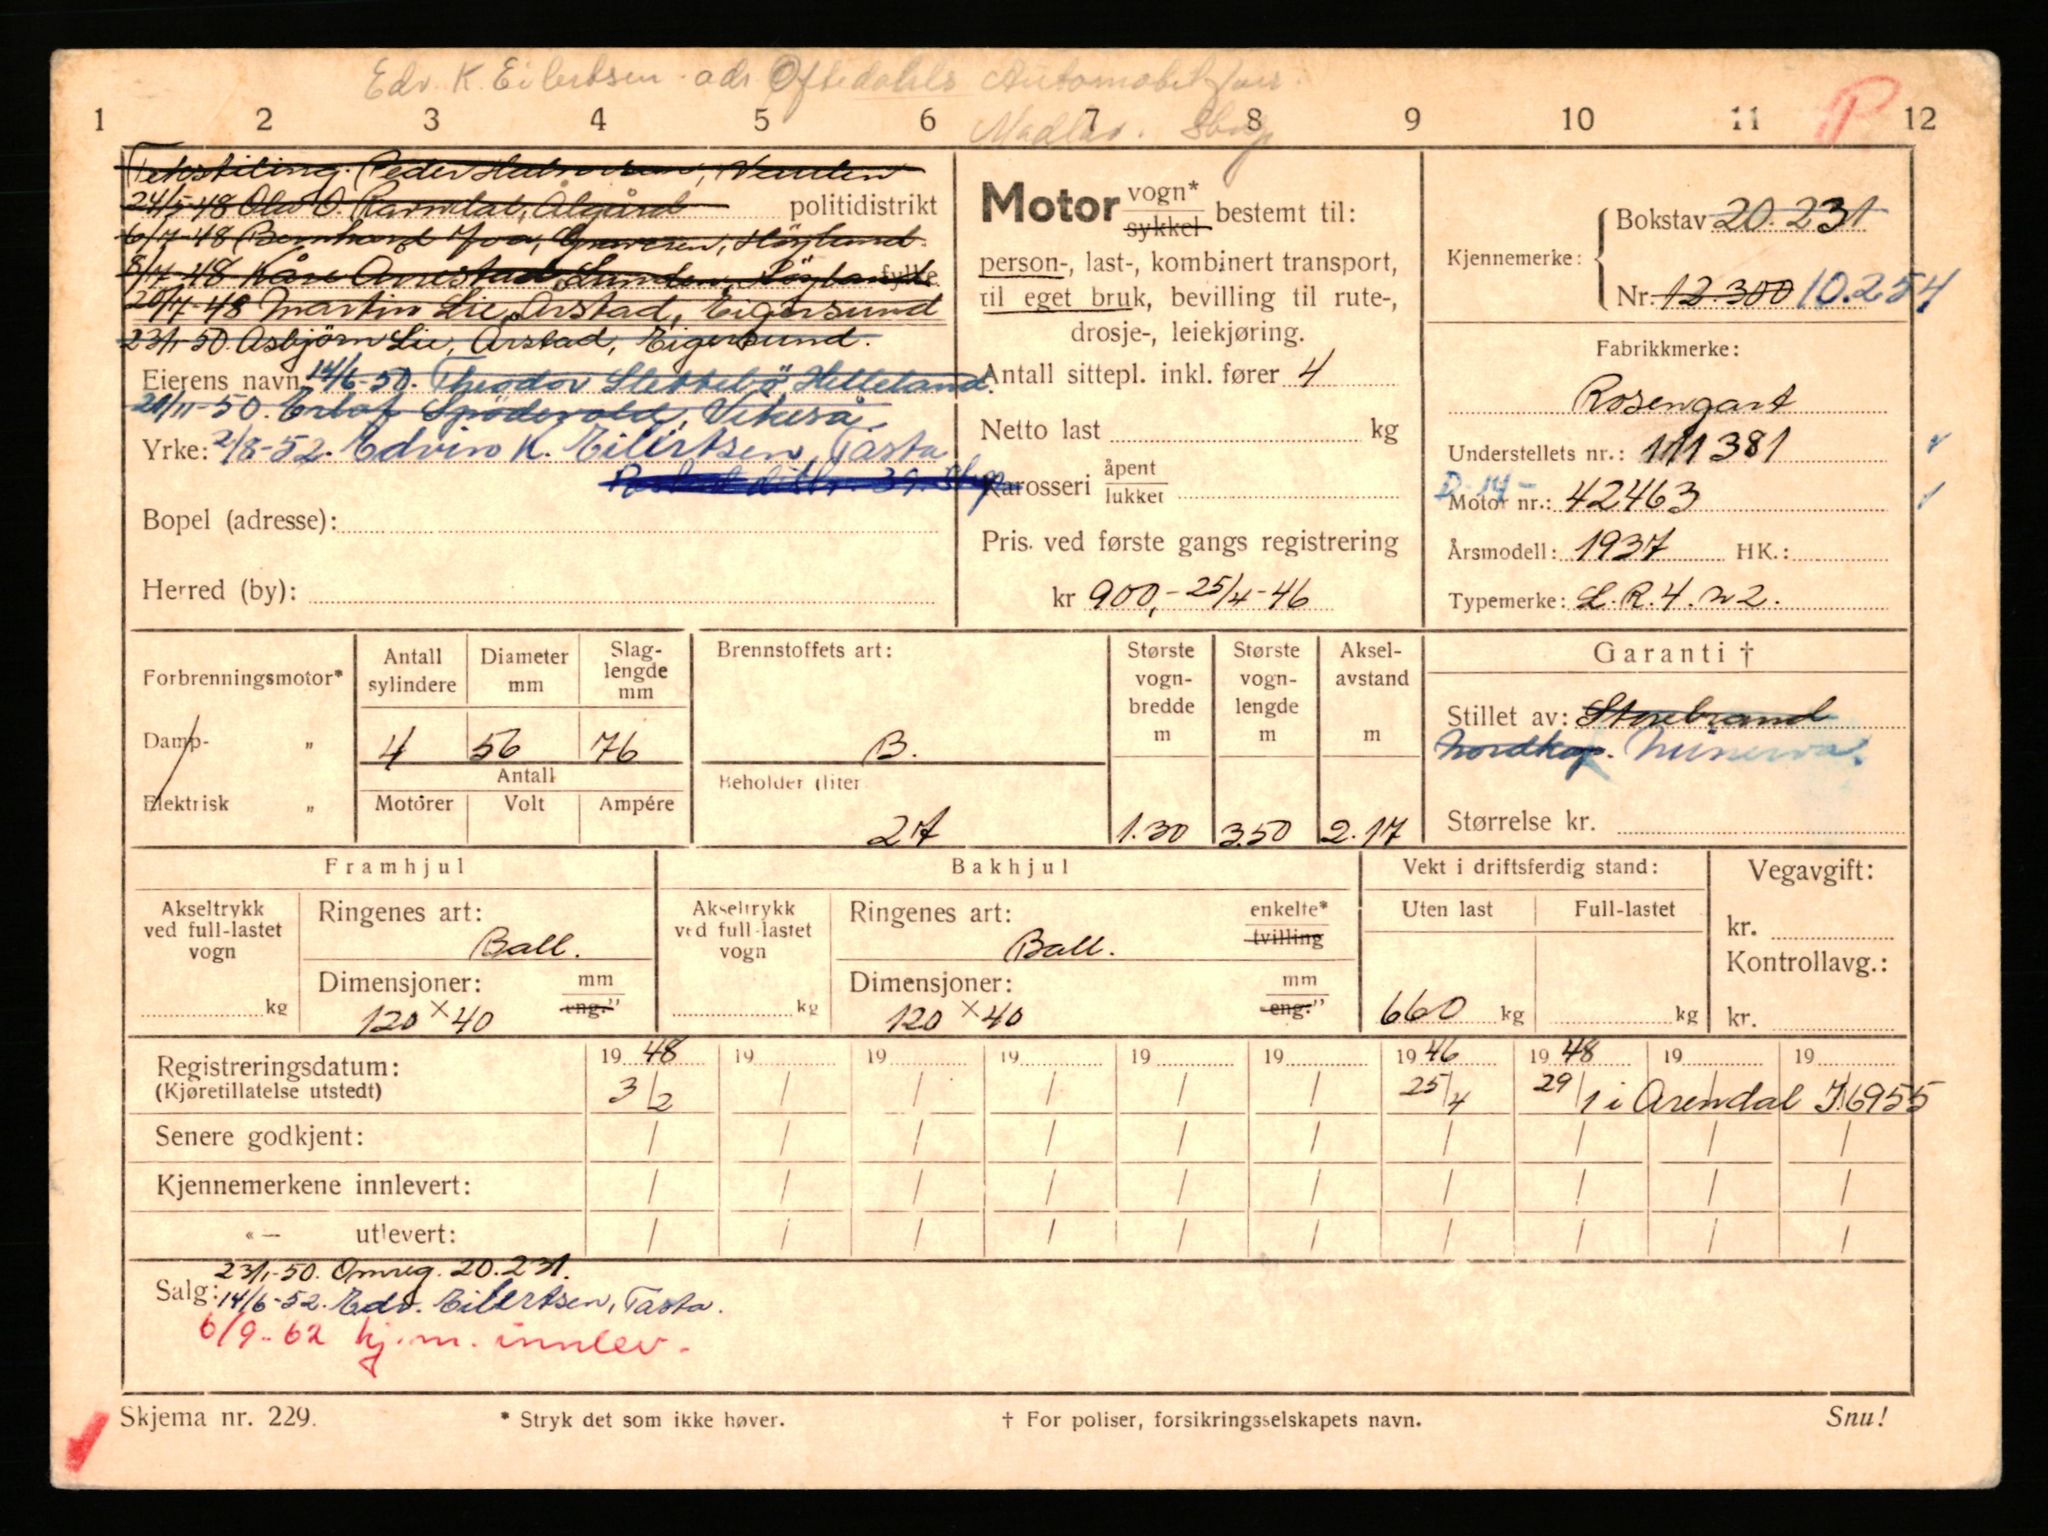 Edv. K. Eilertsen. adr. Oftedahls Automobilforr.
Madlav. Sbog
P
1 2 3 4 5 6 7 8 9 10 11 12
24/5-48 Olav O. Ravndal, Ålgård politidistrikt
fylke
20/7-48 Martin Lie, Årstad, Eigersund
23/1-50. Asbjörn Lie, Årstad, Eigersund.
Eierens navn: 14/6-50. Theodor Slettebö, Helleland.
Vikeså
Yrke: 2/8-52. Edvin K. Eilertsen, Tasta
Bopel (adresse):
Herred (by):
Motor vogn* sykkel bestemt til:
person-, last-, kombinert transport,
til eget bruk, bevilling til rute-,
drosje-, leiekjøring.
Antall sittepl. inkl. fører 4
Netto last kg
Karosseri åpent lukket
Pris. ved første gangs registrering
kr 900,- 25/4-46
Kjennemerke:
Bokstav 20.231
Nr. 12.300 10.254
Fabrikkmerke:
Rosengart
Understellets nr.: 111381
D-14-
Motor nr.: 42463
Årsmodell: 1937 HK.:
Typemerke: L.R.4.n2.
Forbrenningsmotor*
Damp- „
Elektrisk „
Antall sylindere
Diameter mm
Slaglengde mm
4 56 76
Antall
Motorer Volt Ampére
Brennstoffets art:
B.
Beholder (liter
27
Største vognbredde m
1.30
Største vognlengde m
3.50
Akselavstand m
2.17
Garanti †
Stillet av: Storebrand
Nordkap. Minerva.
Størrelse kr.
Framhjul
Akseltrykk ved full-lastet vogn
kg
Ringenes art:
Ball.
Dimensjoner: mm eng."
120 x 40
Bakhjul
Akseltrykk ved full-lastet vogn
kg
Ringenes art: enkelte* tvilling
Ball.
Dimensjoner: mm eng."
120 x 40
Vekt i driftsferdig stand:
Uten last Full-lastet
660 kg kg
Vegavgift:
kr.
Kontrollavg.:
kr.
Registreringsdatum: 19 48 19 19 19 19 19 19 46 19 48 19 19
(Kjøretillatelse utstedt) 3/2 / / / / / 25/4 29/1 i Arendal I.6955
Senere godkjent: / / / / / / / / / /
Kjennemerkene innlevert: / / / / / / / / / /
«— utlevert: / / / / / / / / / /
23/1-50. Omreg. 20.231.
Salg: 14/6-52. Edv. Eilertsen, Tasta.
6/9-62 kj.m. innlev.
Skjema nr. 229. * Stryk det som ikke høver. † For poliser, forsikringsselskapets navn. Snu!